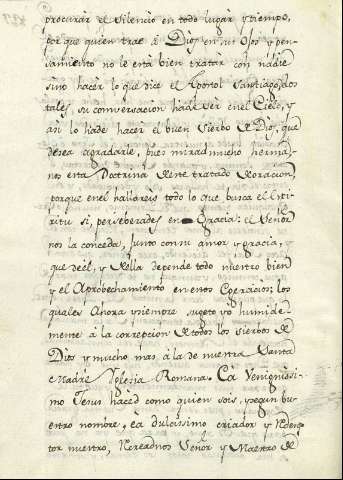 procurar el silencio en todo lugar y tiempo,
porque quien trae â Dios en sus Ojos y pen-
samiento no le està bien tratar con nadie
sino hacer lo que dice el Apostol Santiago, a os
tales, su conversacion hàde ser en el Cielo, y
asi lo hade hacer el buen Sierbo de Dios, que
desea agradarle, pues mirad mucho herma-
nos esta Doctrina deste tratado de oracion,
porque en el hallareis todo lo que busca el Espi-
ritu si, perseverades en Gracia: el Señor
nos la conceda, junto con su amor y gracia, y
que deel, y della depende todo nuestro bien
y el Aprobechamiento en estos Operacion; los
quales Ahora y siempre sugeto yo humilde-
mente â la correpcion de todos los sierbos de
Dios y mucho mas â la de nuestra Santa
Madre Yglesia Romana. Ea Venignisi-
mo Jesus haced como quien sois, y segun bu-
estro nombre, ea dulcissimo criador y Redemp
tor nuestro, Señor y Maestro de